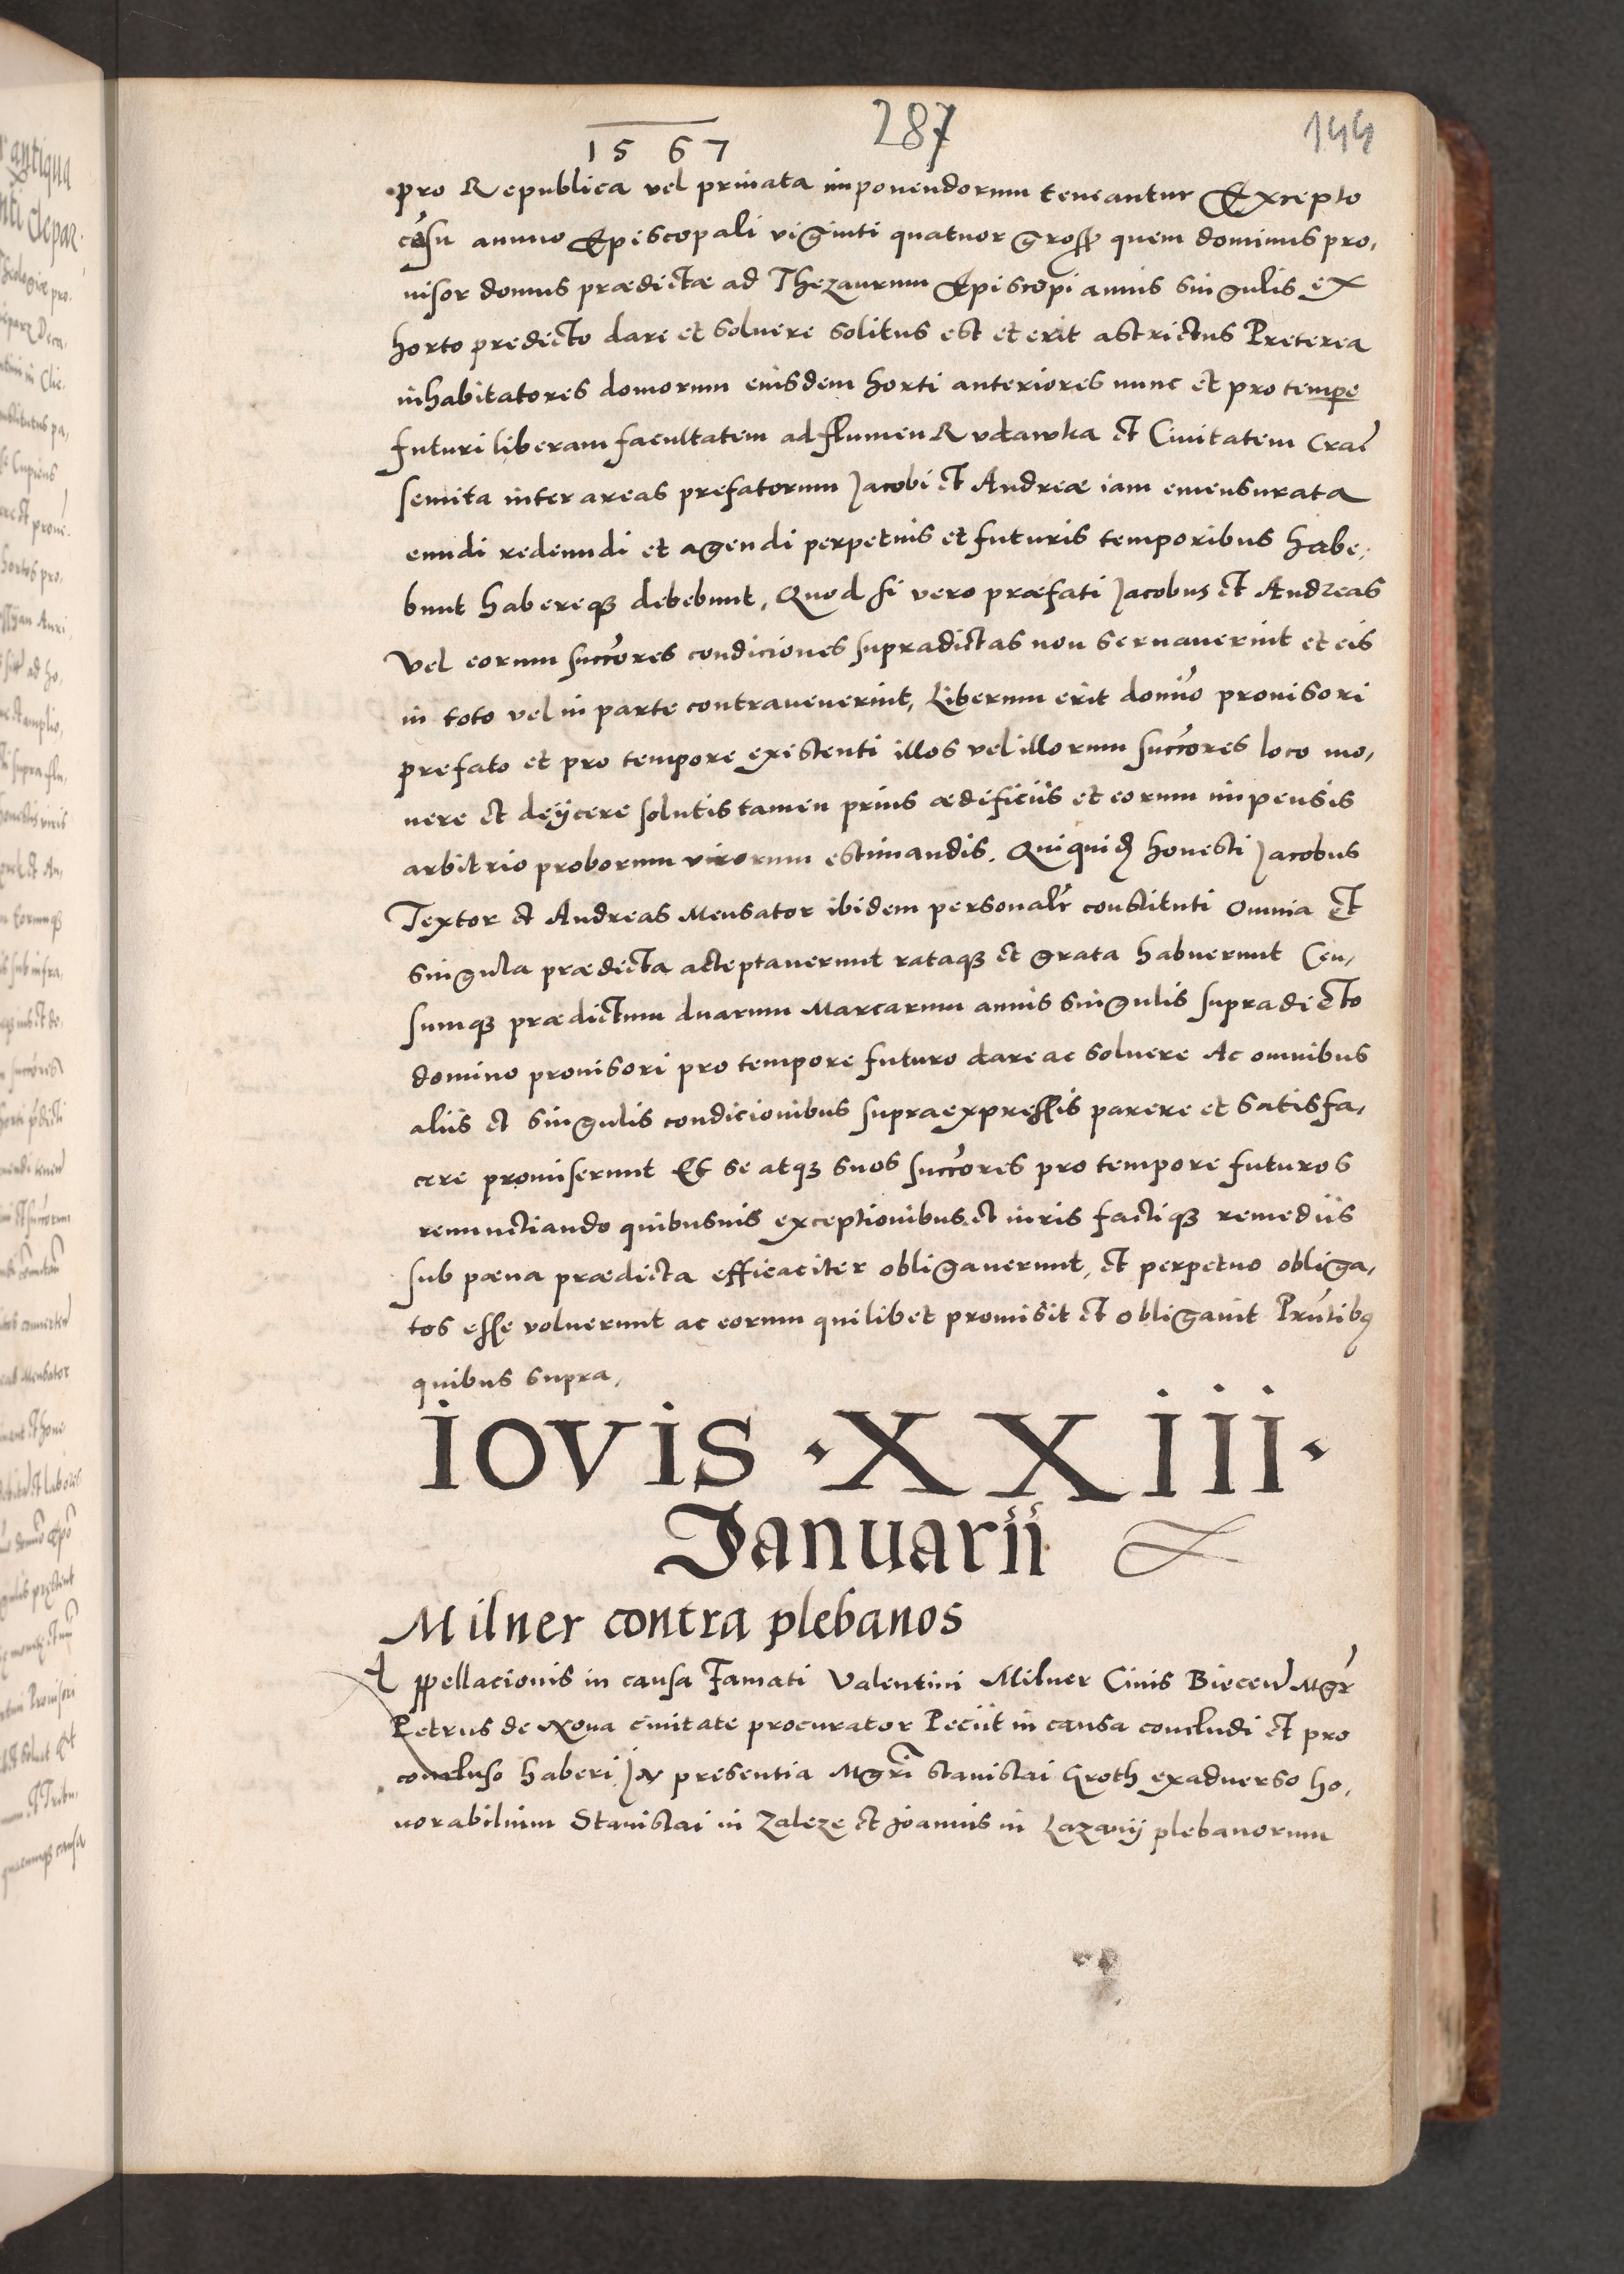 1567
287
144
pro Republica vel priuata imponendorum teneantur Excepto
cẽsu annuo Episcopali viginti quatuor gross quem dominus pro,
uisor domus prædictæ ad Thezaurum Episcopi annis singulis ex
horto predicto dare et soluere solitus est et erit astrictus Preterea
inhabitatores domorum eiusdem horti anteriores nunc et pro tempe
futuri liberam facultatem ad flumen Rudawka et Ciuitatem Crac̃
semita inter areas prefatorum Jacobi et Andreæ iam emensurata
eundi redeundi et agendi perpetuis et futuris temporibus habe,
bunt habereq3 debebunt, Quod si vero præfati Jacobus et Andreas
Vel eorum succ̃ores condiciones supradictas non seruauerint et eis
in toto vel in parte contrauenerint, Liberum erit domĩo prouisori
prefato et pro tempore existenti illos vel illorum succ̃ores loco mo,
uere et deijcere solutis tamen prius ædificiis et eorum impensis
arbitrio proborum virorum estimandis. Quiquid honesti Jacobus
Textor et Andreas Mensator ibidem personalr̃ constituti Omnia et
singula prædicta acceptauerunt rataq3 et grata habuerunt Cen,
sumq3 prædictum duarum Marcarum annis singulis supradicto
domino prouisori pro tempore futuro dare ac soluere Ac omnibus
aliis et singulis condicionibus supraexpressis parere et satisfa,
cere promiserunt Et se atq3 suos succ̃ores pro tempore futuros
renunctiando quibusuis exceptionibus et iuris factiq3 remediis
sub pæna prædicta efficaciter obligauerunt, et perpetuo obliga,
tos esse voluerunt ac eorum quilibet promisit et obligauit Prñtibq
quibus supra,
IOVIS · XXIII ·
Januarii
Milner contra plebanos
Appellacionis in causa Famati Valentini Milner Ciuis Biecen̄ Mgr̃
Petrus de Noua ciuitate procurator Peciit in causa concludi et pro
concluso haberi In presentia Mgr̃i Stanislai Groth exaduerso ho,
norabilium Stanislai in Zaleze et Joannis in Lazany plebanorum